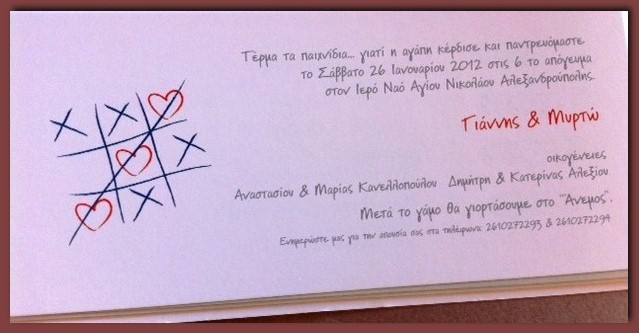 Τέρμα τα παιχνίδια... γιατί η αγάπη κέρδισε και παντρευόμαστε
το Σάββατο 26 Ιανουαρίου 2012 στις 6 το απόγευμα
στον Ιερό Ναό Αγίου Νικολάου Αλεξανδρούπολης.
Γιάννης & Μυρτώ
οικογένειες
Αναστασίου & Μαρίας Κανελλοπούλου Δημήτρη & Κατερίνας Αλεξίου
Μετά το γάμο θα γιορτάσουμε στο "Άνεμος".
Ενημερώστε μας για την απουσία σας στα τηλέφωνα: 2610272293 & 2610272294